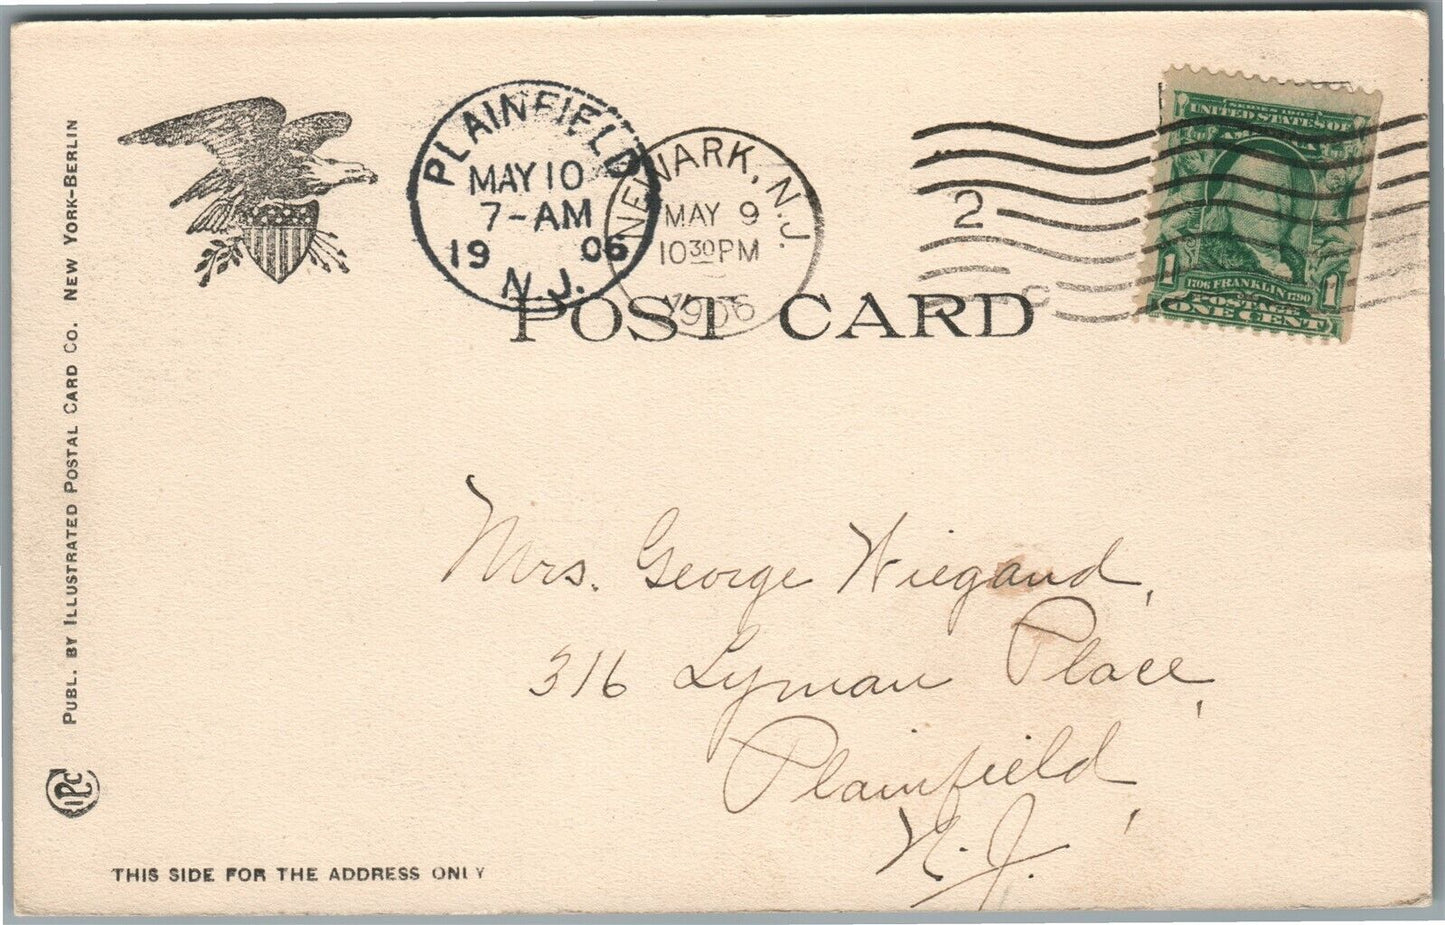 PLAINFIELD
MAY 10
7-AM
1906
N.J.
NEWARK, N.J.
MAY 9
10 30 PM
1906
2
SERIES 1902
UNITED STATES OF
AMERICA
1706 FRANKLIN 1790
POSTAGE
1 ONE CENT 1
POST CARD
PUBL. BY ILLUSTRATED POSTAL CARD CO. NEW YORK-BERLIN
IPC
Mrs. George Wiegand,
316 Lyman Place,
Plainfield,
N.J.
THIS SIDE FOR THE ADDRESS ONLY